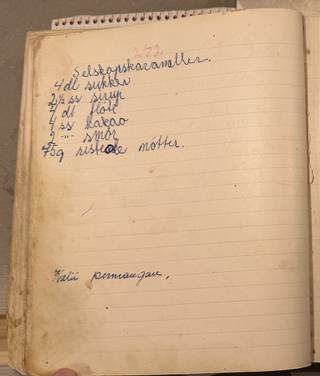 273
Selskapskarameller.
4 dl sukker
2½ ss sirup
4 dl fløte
4 ss kakao
2 -"- smør
75g ristede nötter.
Kalii permangan.